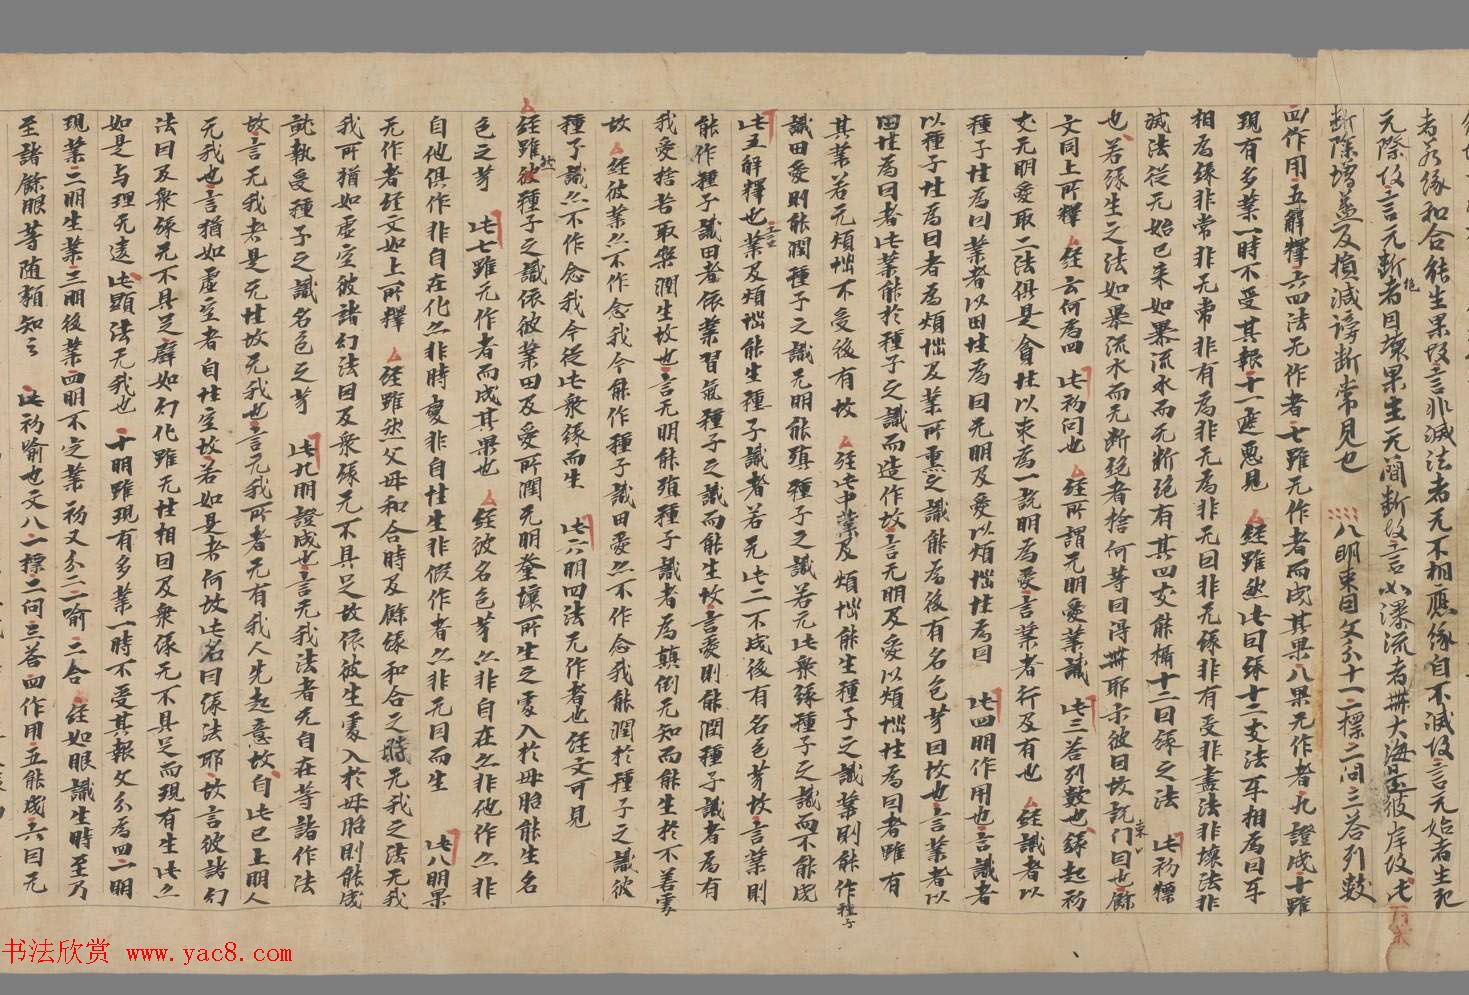 者若緣和合能生果故言非滅法者无不相應緣自不滅故言元始者生死
元際似言无断絶者因壞果生无簡断故言如瀑流者無大海至彼岸故此
断除增益及損減謗断常見也 八明束因文分十一一標二問三答列數
四作用五解釋六四法无作者七雖无作者而成其果八果无作者九證成十雖
現有多業一時不受其報十一遮惡見 經雖然此因緣十二支法互相為因互
相為緣非常非无常非有為非无為非无因非无緣非有受非盡法非壞法非
滅法從无始已来如暴流水而无断絕有其四支能攝十二因緣之法 此初標
也若緣生之法如暴流水而无断絕者捨何等因得無耶示彼因故說束門因也餘
文同上所釋 經云何為四 此初問也 經所謂无明愛業識 此三答列數也緣起初
支无明愛取二法俱是貪性以束為一說明為愛言業者行及有也 經識者以
種子性為因業者以田性為因无明及愛以煩惱性為因 此四明作用也言識者
以種子性為因者為煩惱及業所熏之識能為後有名色芽因故也言業者以
田性為因者此業能於種子之識而造作故言无明及愛以煩惱性為因者雖有
其業若无煩惱不受後有故 經此中業及煩惱能生種子之識業則能作種子
識田愛則能潤種子之識无明能殖種子之識若无此衆緣種子之識而不能成
此五解釋也言業及煩惱能生種子識者若无此二不成後有名色芽故言業則
能作種子識田者依業習氣種子之識而能生故言愛則能潤種子識者為有
我愛捨苦取樂潤生故也言无明能殖種子識者為顛倒无知而能生於不善處
故 經彼業亦不作念我今能作種子識田愛亦不作念我能潤於種子之識彼
種子識亦不作念我今從此衆緣而生 此六明四法无作者也經文可見
經雖然彼種子之識依彼業田及愛所潤无明糞壤所生之處入於母胎能生名
色之芽 此七雖无作者而成其果也 經彼名色芽亦非自在亦非他作亦非
自他俱作非自在化亦非時變非自性生非假作者亦非无因而生 此八明果
无作者經文如上所釋 經雖然父母和合時及餘緣和合之時无我之法无我
我所猶如虛空彼諸幻法因及衆緣无不具足故依彼生處入於母胎則能成
就執受種子之識名色之芽 此九明證成也言无我法者无自在等諸作法
故言无我者是无性故无我也言无我所者无有我人先起意故自此已上明人
无我也言猶如虛空者自性空故若如是者何故此名因緣法耶故言彼諸幻
法因及衆緣无不具足譬如幻化雖无性相因及衆緣无不具足而現有生此亦
如是与理无違此顯法无我也 十明雖現有多業一時不受其報文分為四一明
現業二明生業三明後業四明不定業初又分二一喻二合 經如眼識生時至乃
至諸餘眼等随類知之 此初喻也文八一標二問三答四作用五能成六因无
书法欣赏 www.yac8.com